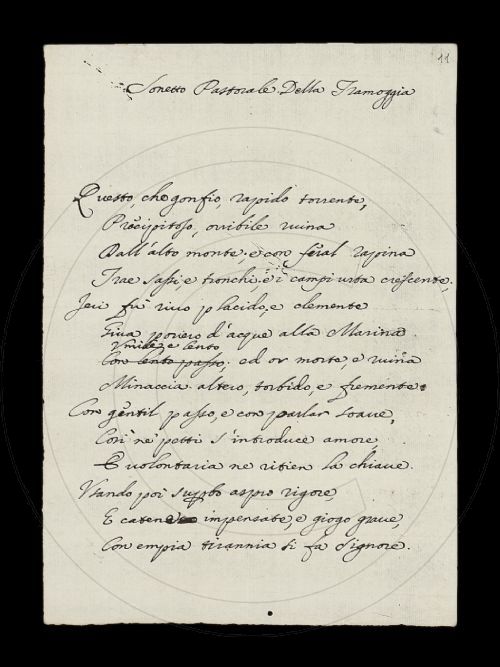 11
Sonetto Pastorale Della Tramoggia
Questo, che gonfio, rapido torrente,
Precipitoso, orribile ruina
Dall'alto monte, e con feral rapina
Trae sassi e tronchi, e i campi urta crescente,
Jeri fù rivo placido, e clemente
Giva povero d'acque alla Marina
Umile, e lento
Con lento passo, ed or morte, e ruina
Minaccia altero, torbido, e fremente.
Con gentil passo, e con parlar soave,
Così ne' petti s'introduce amore,
E volontaria ne ritien la chiave.
Usando poi superbo aspro rigore,
E catene impensate, e giogo grave,
Con empia tirannia si fà Signore.